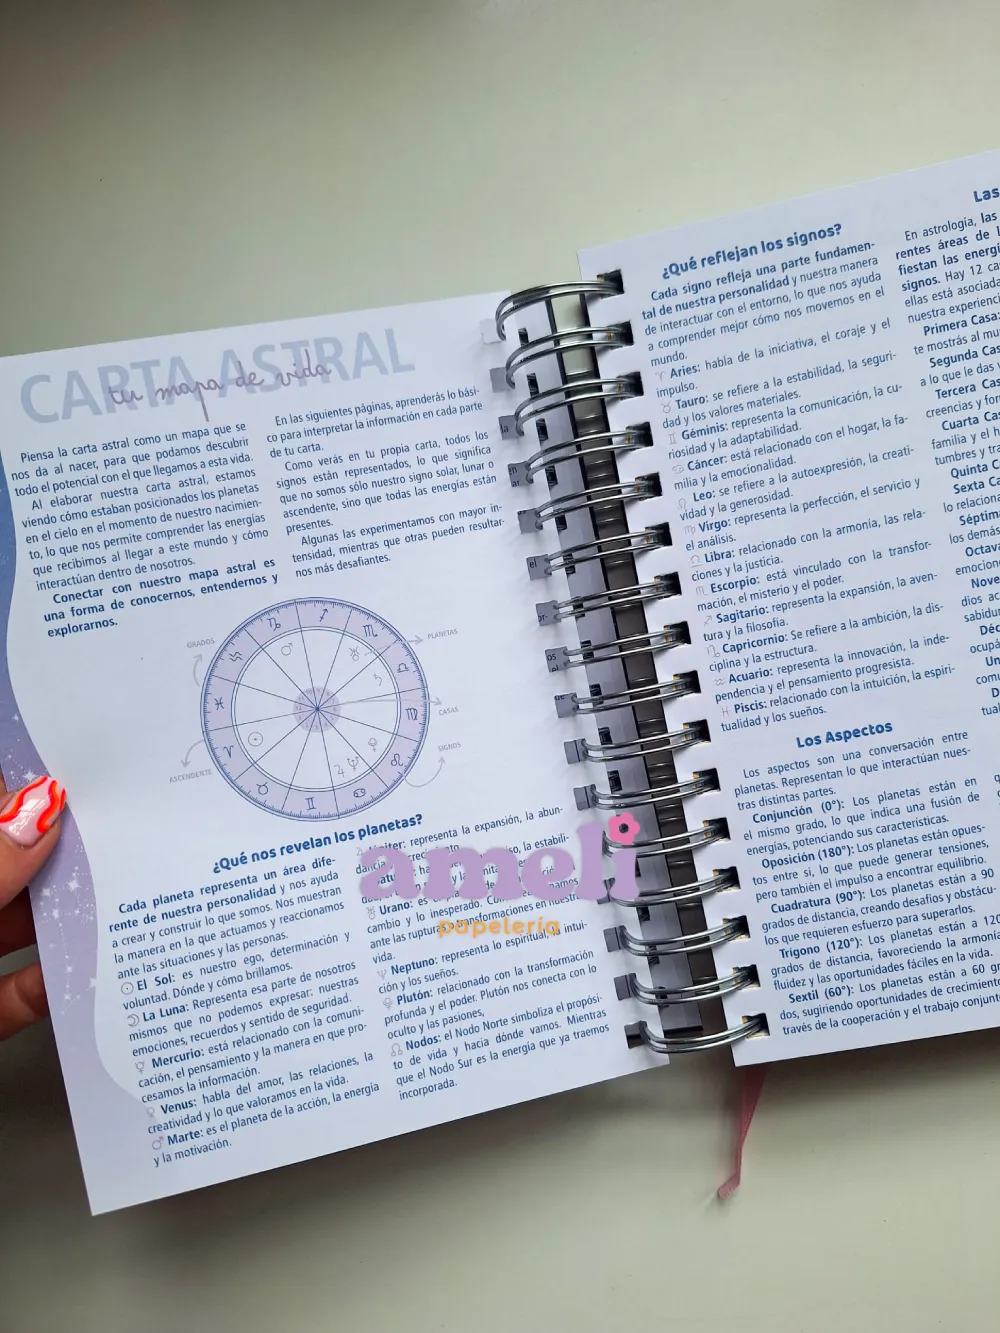 CARTA ASTRAL
tu mapa de vida
Piensa la carta astral como un mapa que se
nos da al nacer, para que podamos descubrir
todo el potencial con el que llegamos a esta vida.
Al elaborar nuestra carta astral, estamos
viendo cómo estaban posicionados los planetas
en el cielo en el momento de nuestro nacimien-
to, lo que nos permite comprender las energías
que recibimos al llegar a este mundo y cómo
interactúan dentro de nosotros.
Conectar con nuestro mapa astral es
una forma de conocernos, entendernos y
explorarnos.
En las siguientes páginas, aprenderás lo bási-
co para interpretar la información en cada parte
de tu carta.
Como verás en tu propia carta, todos los
signos están representados, lo que significa
que no somos sólo nuestro signo solar, lunar o
ascendente, sino que todas las energías están
presentes.
Algunas las experimentamos con mayor in-
tensidad, mientras que otras pueden resultar-
nos más desafiantes.
GRADOS
PLANETAS
CASAS
SIGNOS
ASCENDENTE
¿Qué nos revelan los planetas?
Cada planeta representa un área dife-
rente de nuestra personalidad y nos ayuda
a crear y construir lo que somos. Nos muestran
la manera en la que actuamos y reaccionamos
ante las situaciones y las personas.
☉ El Sol: es nuestro ego, determinación y
voluntad. Dónde y cómo brillamos.
☽ La Luna: Representa esa parte de nosotros
mismos que no podemos expresar: nuestras
emociones, recuerdos y sentido de seguridad.
☿ Mercurio: está relacionado con la comuni-
cación, el pensamiento y la manera en que pro-
cesamos la información.
♀ Venus: habla del amor, las relaciones, la
creatividad y lo que valoramos en la vida.
♂ Marte: es el planeta de la acción, la energía
y la motivación.
representa la expansión, la abun-
la estabili-
♅ Urano: es
cambio y lo inesperado.
ante las rupturas transformaciones en nuestra
vida.
♆ Neptuno: representa lo espiritual, la intui-
ción y los sueños.
Plutón: relacionado con la transformación
profunda y el poder. Plutón nos conecta con lo
oculto y las pasiones,
☊ Nodos: el Nodo Norte simboliza el propósi-
to de vida y hacia dónde vamos. Mientras
que el Nodo Sur es la energía que ya traemos
incorporada.
ameli
papelería
¿Qué reflejan los signos?
Cada signo refleja una parte fundamen-
tal de nuestra personalidad y nuestra manera
de interactuar con el entorno, lo que nos ayuda
a comprender mejor cómo nos movemos en el
mundo.
♈ Aries: habla de la iniciativa, el coraje y el
impulso.
♉ Tauro: se refiere a la estabilidad, la seguri-
dad y los valores materiales.
♊ Géminis: representa la comunicación, la cu-
riosidad y la adaptabilidad.
♋ Cáncer: está relacionado con el hogar, la fa-
milia y la emocionalidad.
♌ Leo: se refiere a la autoexpresión, la creati-
vidad y la generosidad.
♍ Virgo: representa la perfección, el servicio y
el análisis.
♎ Libra: relacionado con la armonía, las rela-
ciones y la justicia.
♏ Escorpio: está vinculado con la transfor-
mación, el misterio y el poder.
♐ Sagitario: representa la expansión, la aven-
tura y la filosofía.
♑ Capricornio: Se refiere a la ambición, la dis-
ciplina y la estructura.
♒ Acuario: representa la innovación, la inde-
pendencia y el pensamiento progresista.
♓ Piscis: relacionado con la intuición, la espiri-
tualidad y los sueños.
Los Aspectos
Los aspectos son una conversación entre
planetas. Representan lo que interactúan nues-
tras distintas partes.
Conjunción (0°): Los planetas están en
el mismo grado, lo que indica una fusión de
energías, potenciando sus características.
Oposición (180°): Los planetas están opues-
tos entre sí, lo que puede generar tensiones,
pero también el impulso a encontrar equilibrio.
Cuadratura (90°): Los planetas están a 90
grados de distancia, creando desafíos y obstácu-
los que requieren esfuerzo para superarlos.
Trígono (120°): Los planetas están a 120
grados de distancia, favoreciendo la armonía
fluidez y las oportunidades fáciles en la vida.
Sextil (60°): Los planetas están a 60 gra
dos, sugiriendo oportunidades de crecimiento
través de la cooperación y el trabajo conjunt
Las
En astrología, las
rentes áreas de l
fiestan las energí
signos. Hay 12 ca
ellas está asociada
nuestra experienci
Primera Casa:
te mostrás al mu
Segunda Cas
a lo que le das v
Tercera Cas
creencias y for
Cuarta Ca
familia y el h
tumbres y tra
Quinta C
Sexta Ca
lo relacion
Séptim
los demás
Octava
emocione
Nove
dios ac
sabidur
Déc
ocupá
Un
com
D
tual